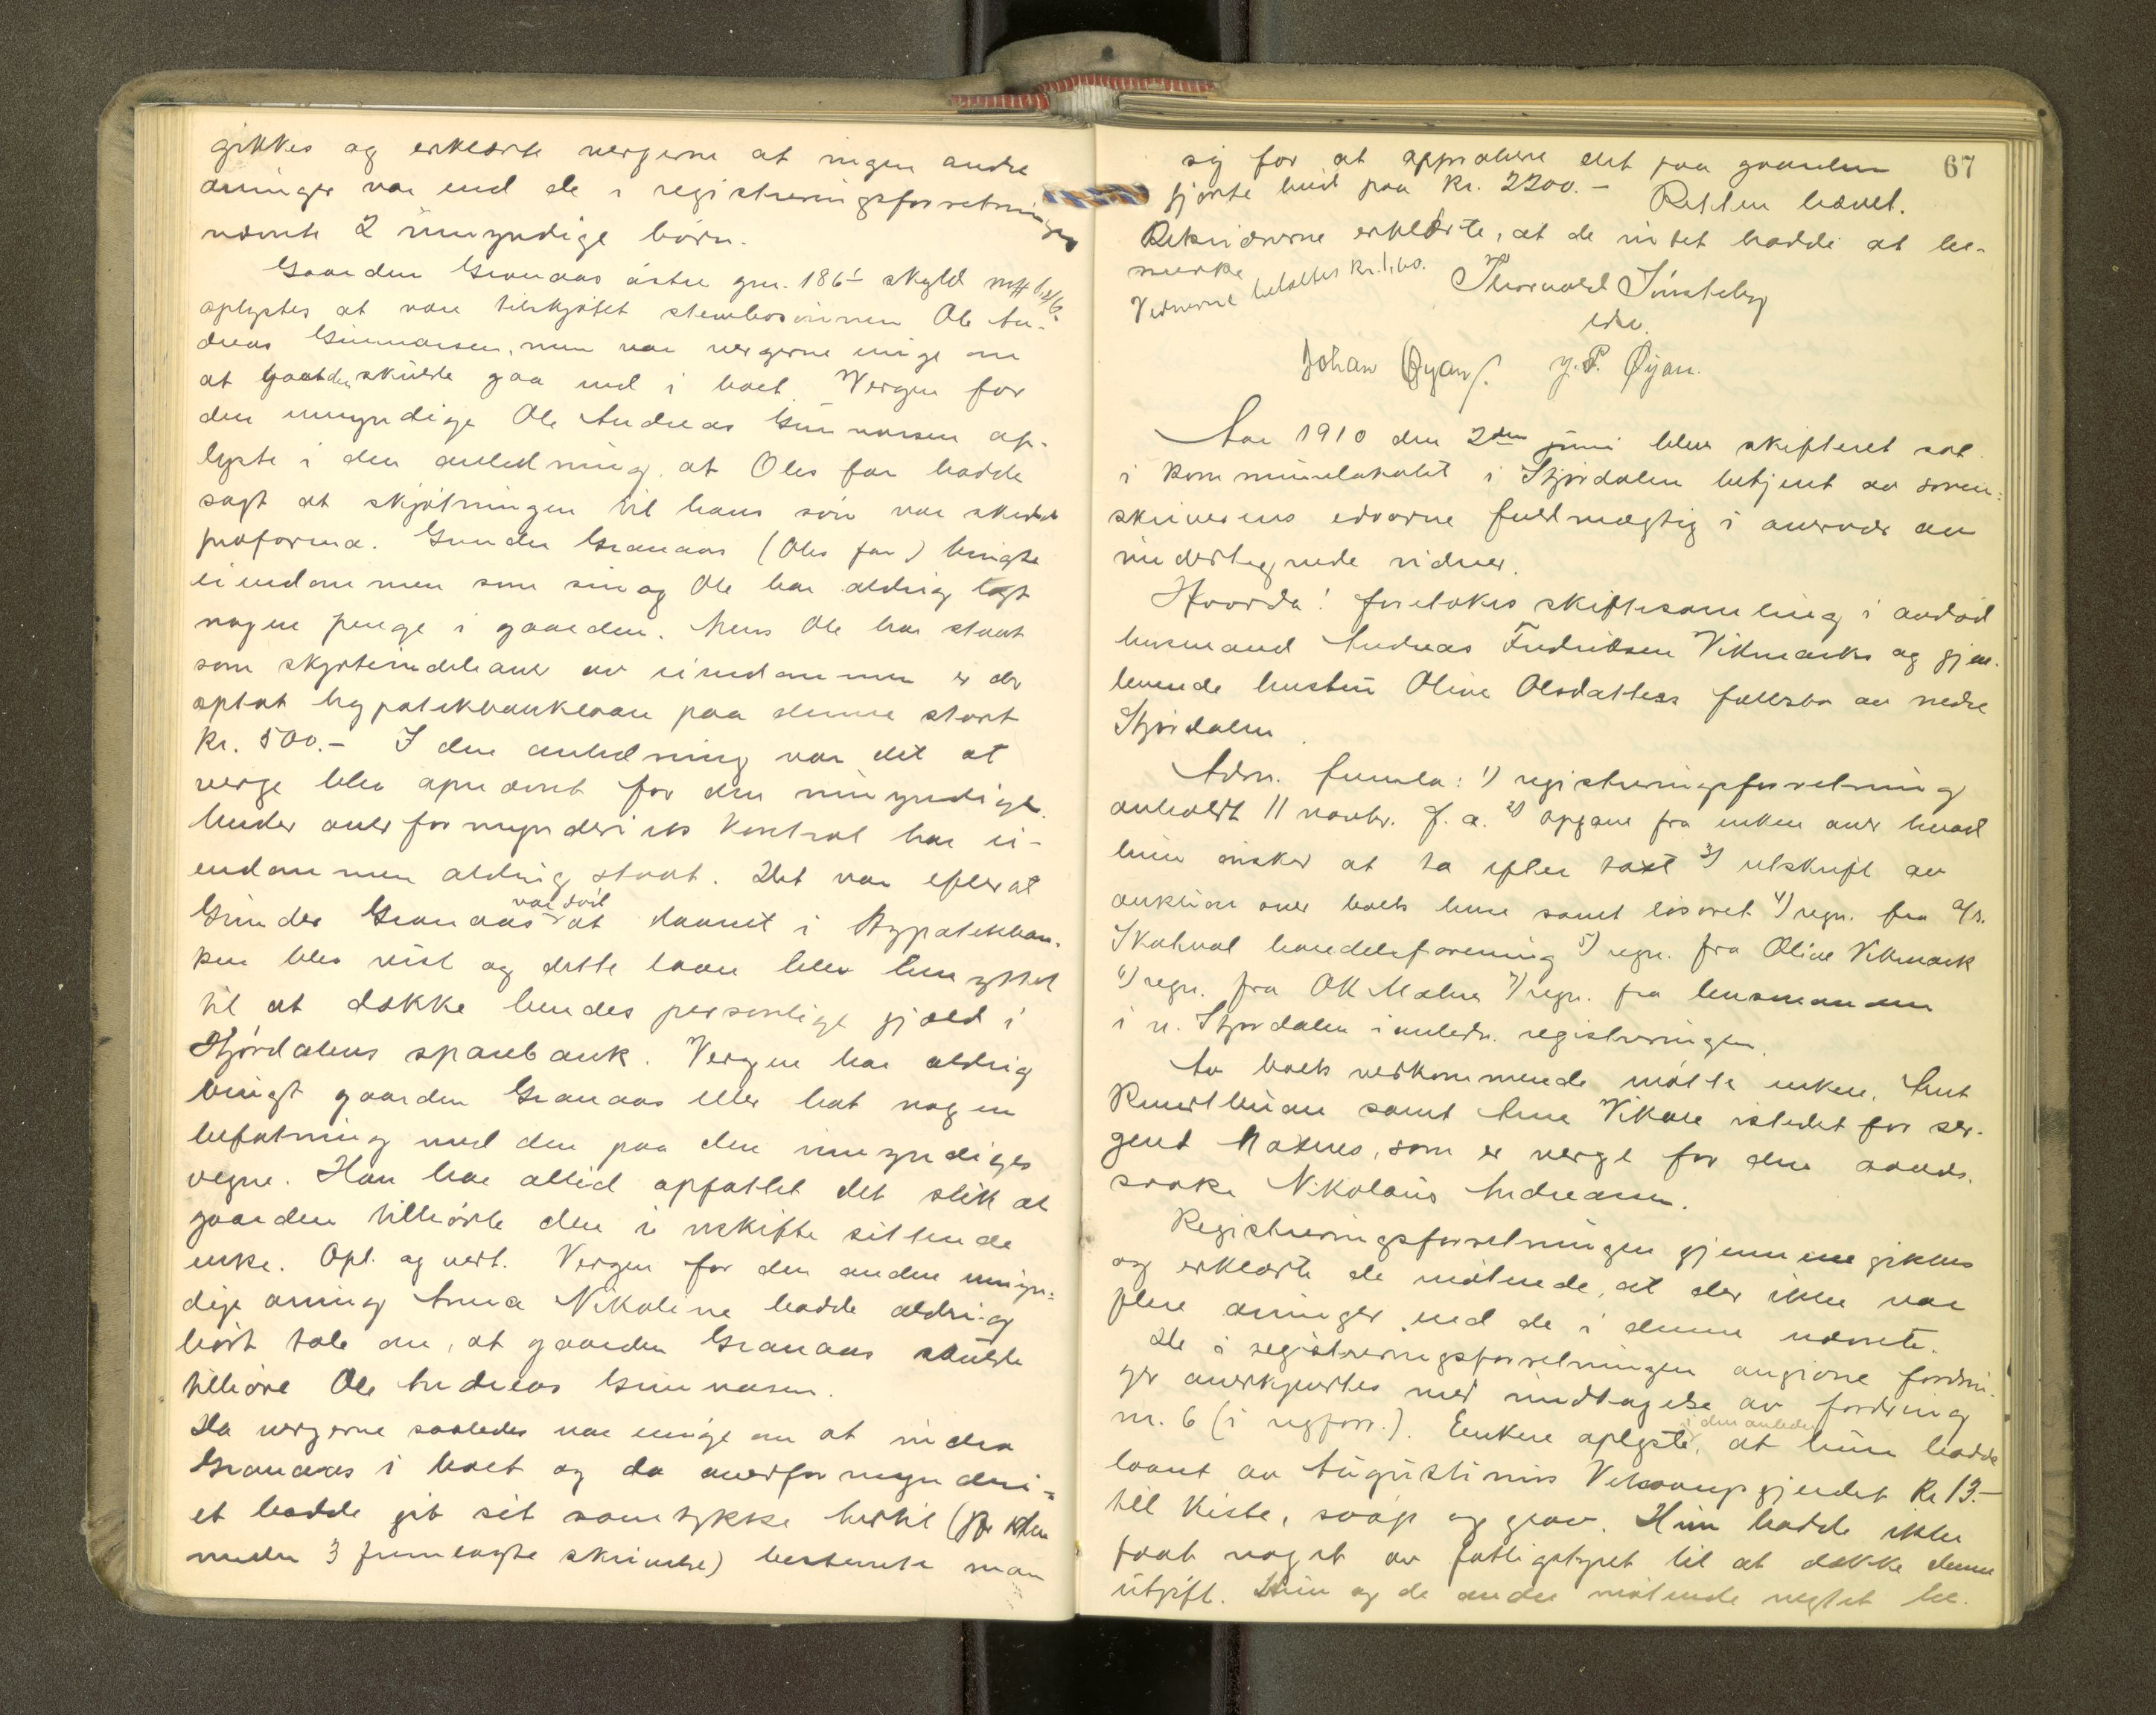 gikkes og erklærte vergerne at ingen andre
arvinger var end de i registreringsforretningen
nævnte 2 umyndige børn.
Gaarden Granaas østre gnr. 186/1 skyld mk
oplystes at være tilskjøtet stervbosønnen Ole An-
dreas Gunnarsen, men var vergerne enige om
at gaarden skulde gaa ind i boet. Vergen for
den umyndige Ole Andreas Gunnarsen op-
lyste i den anledning, at Oles far hadde
sagt at skjøtningen til hans søn var skedd
proforma. Gunder Granaas (Oles far) brugte
eiendommen som sin og Ole har aldrig lagt
nogen penge i gaarden. Mens Ole har staat
som skjøteindehaver av eiendommen er der
optat hypotekbanklaan paa denne stort
kr. 500.- I den anledning var det at
verge blev opnævnt for den umyndige.
Under overformynderiets kontrol har ei-
endommen aldrig staat. Det var efterat
Gunder Granaas var død at laanet i Hypotekban-
ken blev reist og dette laan blev benyttet
til at dække hendes personlige gjæld i
Stjørdalens sparebank. Vergen har aldrig
brugt gaarden Granaas eller hat nogen
befatning med den paa den umyndiges
vegne. Han har altid opfattet det slik at
gaarden tilhørte den i uskifte sittende
enke. Opl. og vert. Vergen for den anden umyn=
dige arving Anna Nikoline hadde aldrig
hørt tale om, at gaarden Granaas skulde
tilhøre Ole Andreas Gunnarsen.
Da vergerne saaledes var enige om at indra
Granaas i boet og da overformynderi=
et hadde git sit samtykke hertil (jfr den
under 3 fremlagte skrivelse) bestemte man
67
sig for at approbere det paa gaarden
gjorte bud paa kr. 2200.- Retten hævet.
Rekvirerne erklærte, at de intet hadde at be-
merke
Vidnerne betaltes kr. 1,60. Thorvald Sunsteby
edsv.
Johan Øyan. J. P. Øyan.
Aar 1910 den 2den juni blev skifteret sat
i kommunelokalet i Stjørdalen betjent av soren=
skriverens edsvorne fuldmægtig i overvær av
undertegnede vidner.
Hvorda! foretokes skiftesamling i avdød
husmand Andreas Fredriksen Vikmarks og gjen-
levende hustru Oline Olsdatters fællesbo av nedre
Stjørdalen.
Adm. fremla: 1) registreringsforretning
avholdt 11 novbr. f. a. 2) opgave fra enken over hvad
hun ønsker at ta efter taxt 3) utskrift av
auktion over boets huse samt løsøret 4) regn. fra a/s.
Skatval handelsforening 5) regn. fra Oline Vikmark
6) regn. fra OK Mæhre 7) regn. fra lensmanden
i n. Stjørdalen i anledn. registreringen.
Av boets vedkommende møtte enken. Ant
samt Arne Vikan istedet for ser-
gent Matnes, som er verge for den aands-
svake Nikolaus Andreassen.
Registreringsforretningen gjennemgikkes
og erklærte de møtende, at der ikke var
flere arvinger end de i denne nævnte.
De i registreringsforretningen angivne fordrin-
ger anerkjentes med undtagelse av fordring
nr. 6 (i regforr.). Enken oplyste, i den anledn. at hun hadde
laant av Augustinus Vikvangjerdet kr 13.-
till kiste, svøp og grav. Hun hadde ikke
faat noget av fattigstyret til at dække denne
utgift. Hun og de andre møtende negtet be-